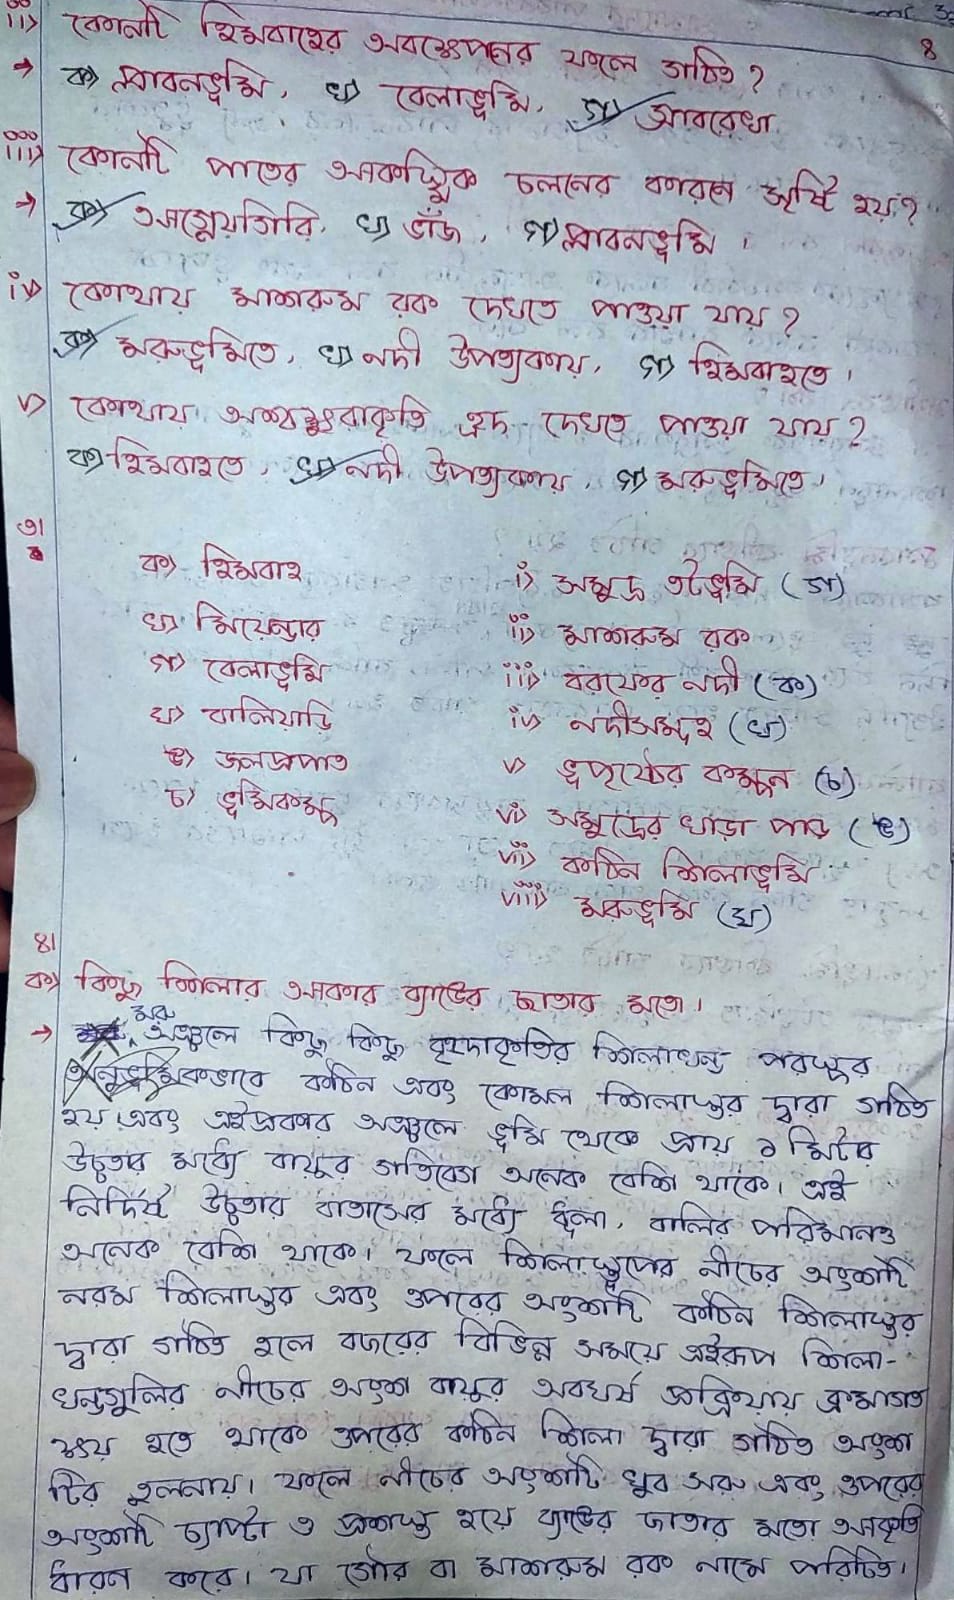 ii) কোনটি হিমবাহের অবক্ষেপনের ফলে গঠিত?
8
→ ক) প্লাবনভূমি, খ) বেলাভূমি, গ) গ্রাবরেখা
iii) কোনটি পাতের আকস্মিক চলনের কারণে সৃষ্টি হয়?
→ ক) আগ্নেয়গিরি, খ) ভাঁজ, গ) প্লাবনভূমি।
iv) কোথায় মাশরুম রক দেখতে পাওয়া যায়?
ক) মরুভূমিতে, খ) নদী উপত্যকায়, গ) হিমবাহতে।
v) কোথায় অশ্বক্ষুরাকৃতি হ্রদ দেখতে পাওয়া যায়?
ক) হিমবাহতে, খ) নদী উপত্যকায়, গ) মরুভূমিতে।
৩।
ক) হিমবাহ i) সমুদ্র তটভূমি (গ)
খ) মিয়েন্ডার ii) মাশরুম রক
গ) বেলাভূমি iii) বরফের নদী (ক)
ঘ) বালিয়াড়ি iv) নদীসমূহ (খ)
ঙ) জলপ্রপাত v) ভূপৃষ্ঠের কম্পন (চ)
চ) ভূমিকম্প vi) সমুদ্রের খাড়া পাড় (ঙ)
vii) কঠিন শিলাভূমি
viii) মরুভূমি (ঘ)
৪।
ক) কিছু শিলার আকার ব্যাঙের ছাতার মতো।
→ মরু অঞ্চলে কিছু কিছু বৃহদাকৃতির শিলাখন্ড পরস্পর
অনুভূমিকভাবে কঠিন এবং কোমল শিলাস্তর দ্বারা গঠিত
হয় এবং এইপ্রকার অঞ্চলে ভূমি থেকে প্রায় ১ মিটার
উচ্চতার মধ্যে বায়ুর গতিবেগ অনেক বেশি থাকে। এই
নির্দিষ্ট উচ্চতার বাতাসের মধ্যে ধুলা, বালির পরিমানও
অনেক বেশি থাকে। ফলে শিলাস্তূপের নীচের অংশটি
নরম শিলাস্তর এবং ওপরের অংশটি কঠিন শিলাস্তর
দ্বারা গঠিত হলে বছরের বিভিন্ন সময়ে এইরূপ শিলা-
খন্ডগুলির নীচের অংশ বায়ুর অবঘর্ষ প্রক্রিয়ায় ক্রমাগত
ক্ষয় হতে থাকে ওপরের কঠিন শিলা দ্বারা গঠিত অংশ
টির তুলনায়। ফলে নীচের অংশটি খুব সরু এবং ওপরের
অংশটি চ্যাপ্টা ও প্রশস্ত হয়ে ব্যাঙের ছাতার মতো আকৃতি
ধারন করে। যা গৌর বা মাশরুম রক নামে পরিচিত।